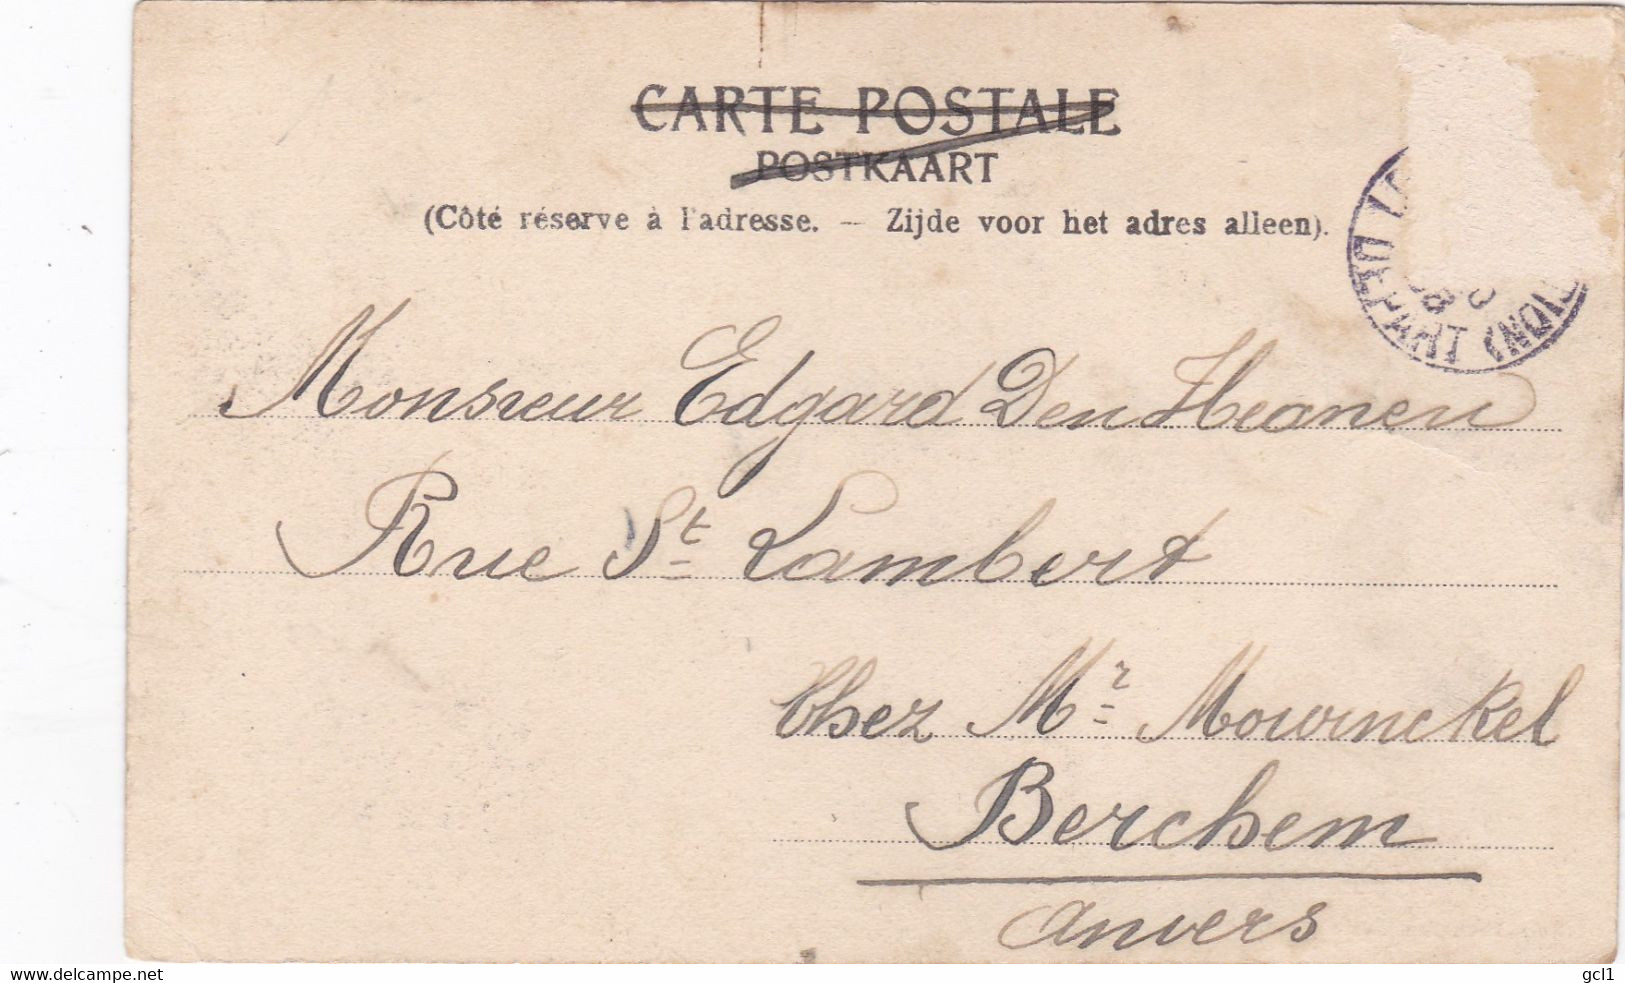 CARTE POSTALE
POSTKAART
(Côté réservé à l'adresse. — Zijde voor het adres alleen).
DEPART
Monsieur Edgard Den Haenen
Rue St Lambert
Chez Mr Mowinckel
Berchem
Anvers
www.delcampe.net
gcl1